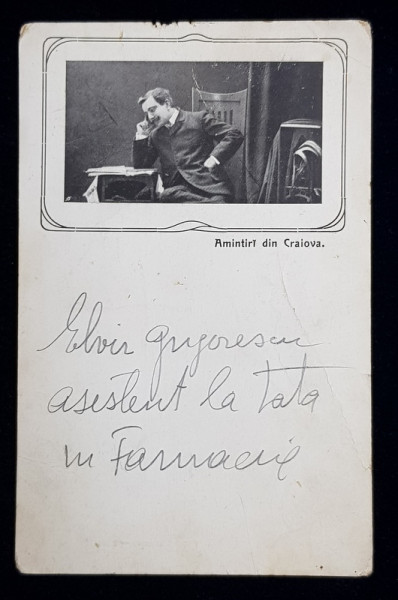 Amintirĭ din Craiova.
Elvir Grigorescu
asistent la Tata
in Farmacie